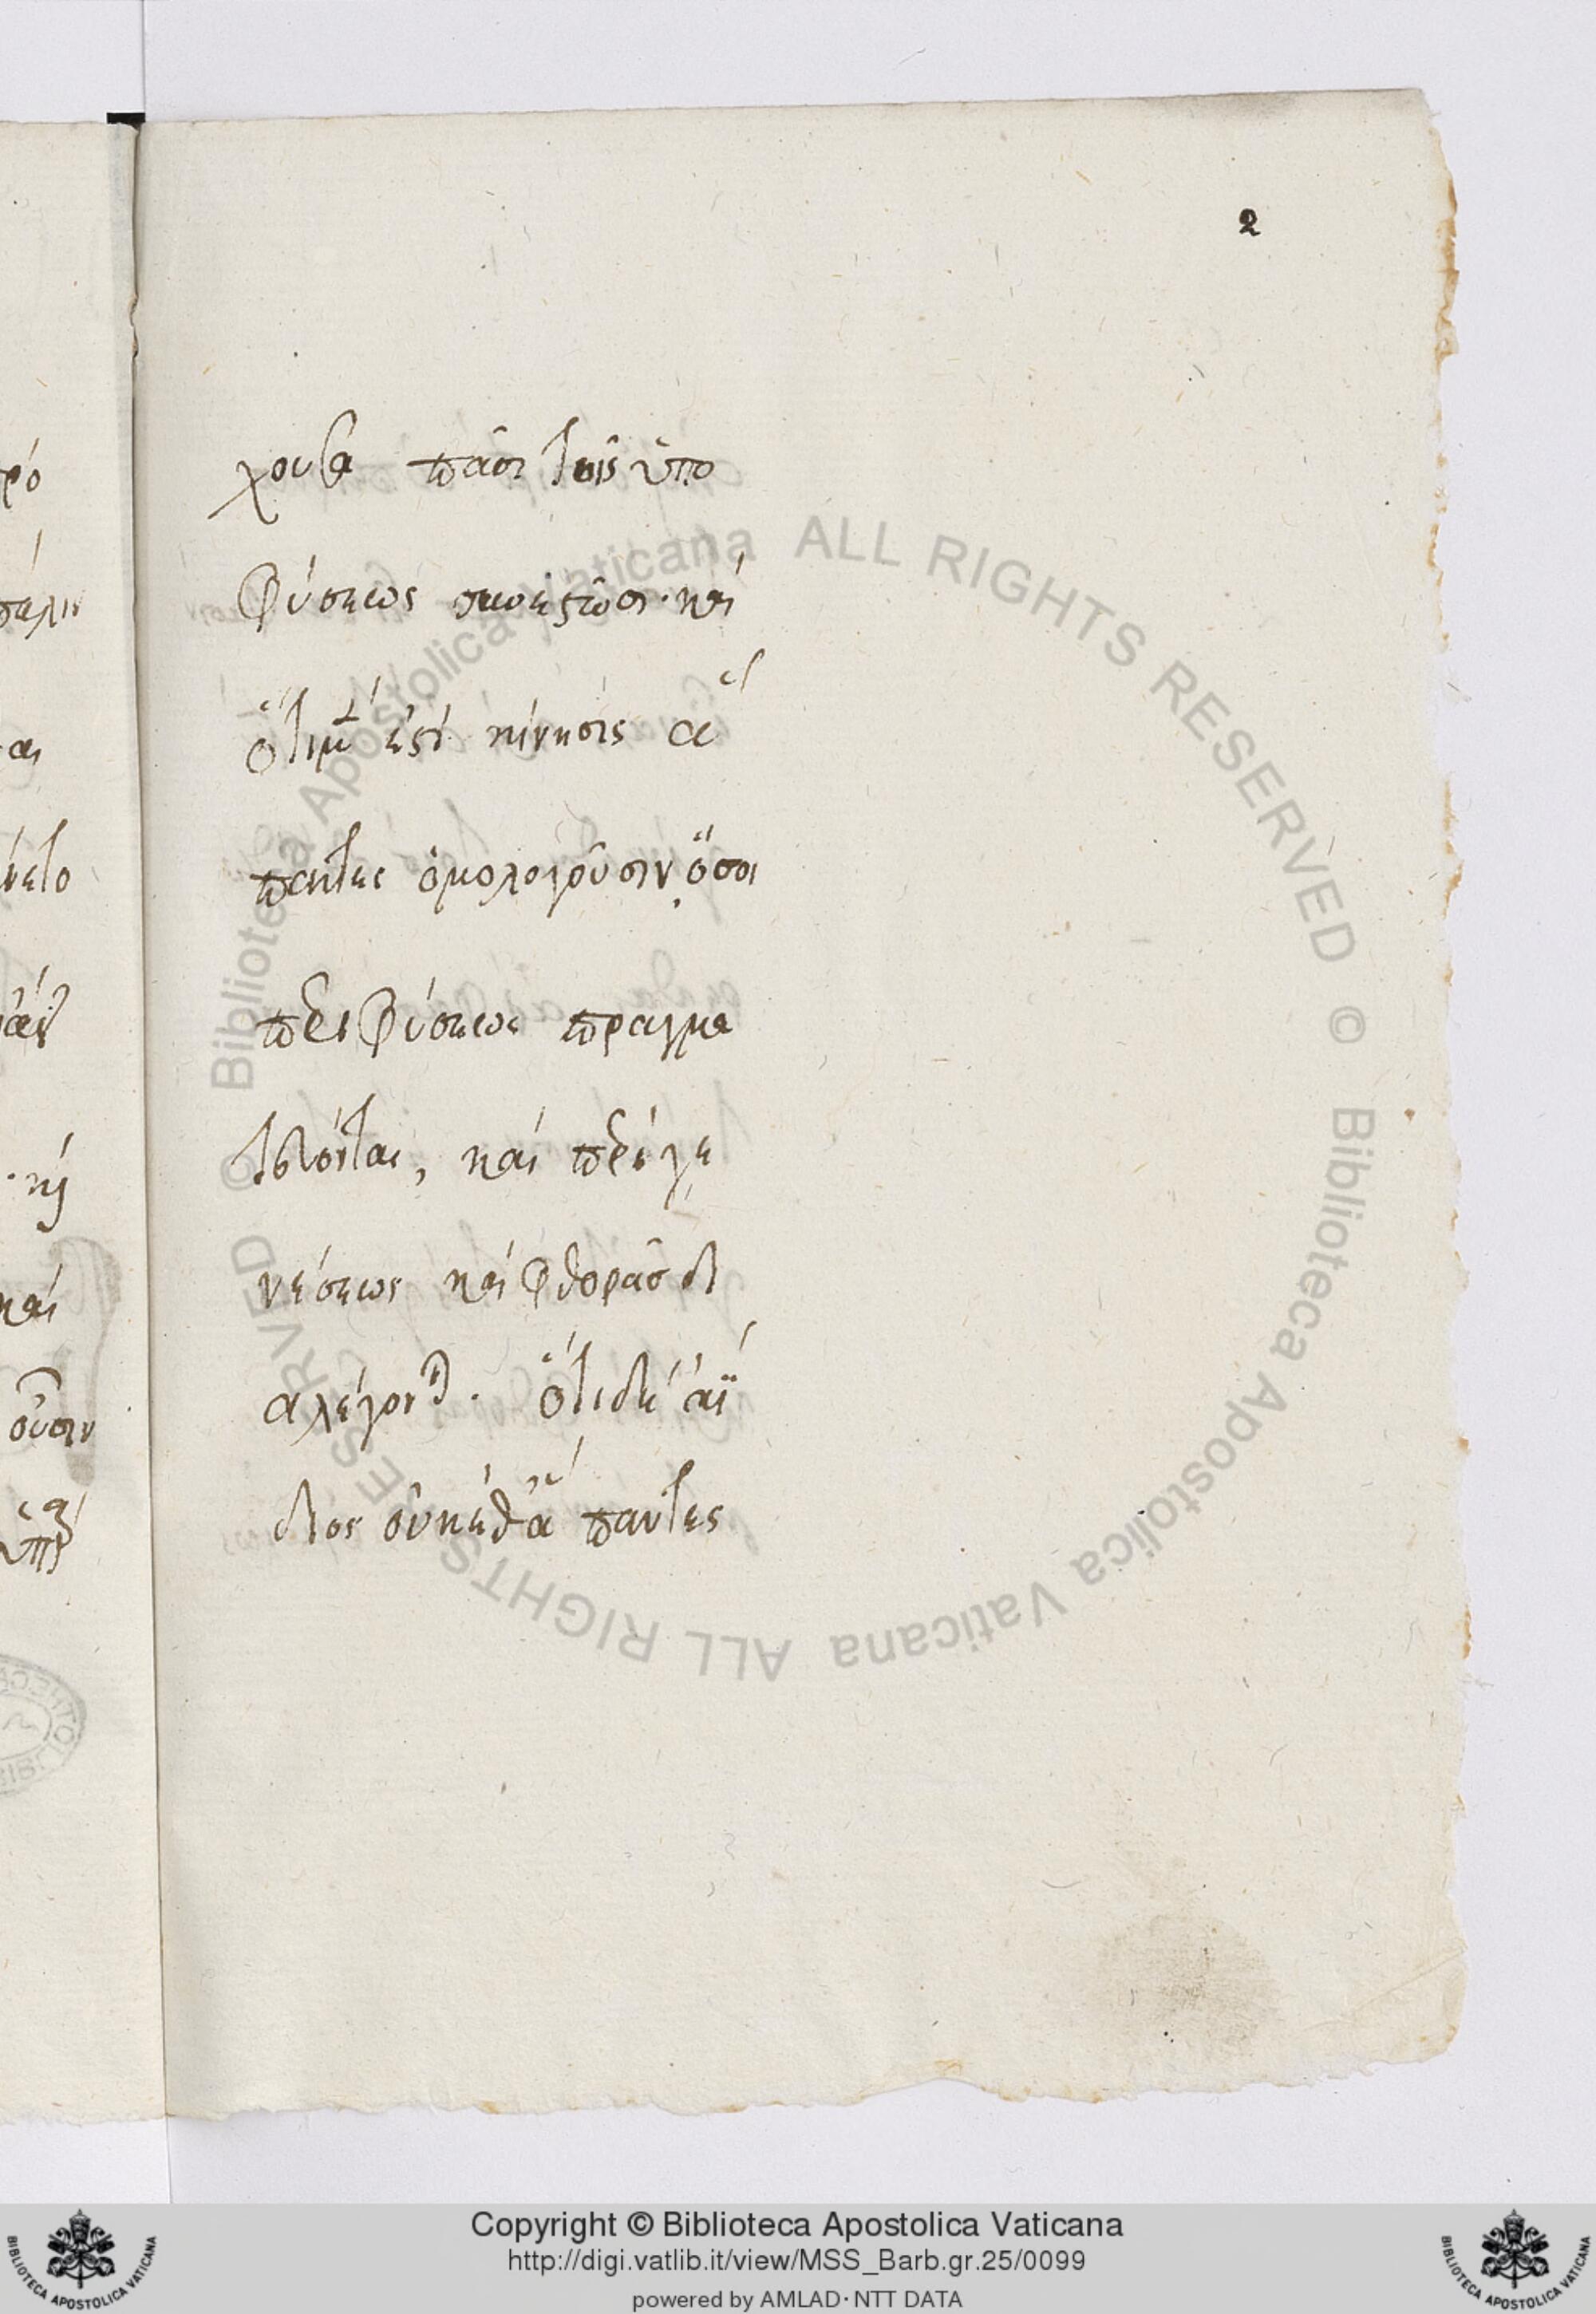 2
χουσα πᾶσι τοῖς ὑπὸ
φύσεως συνεστῶσι· καὶ
ὅτι μὲν ἐστὶ κίνησις ἅ
παντες ὁμολογοῦσιν, ὅσοι
περὶ φύσεως πραγμα
τεύονται, καὶ περὶ γε
νέσεως καὶ φθορᾶσ δι
αλέγονται. ὅτι δὲ ἀΐ
διος οὐκέθ' ἅ παντες
ρό
πάλιν
αι
νετο
καὶ
οῦσιν
Copyright © Biblioteca Apostolica Vaticana
http://digi.vatlib.it/view/MSS_Barb.gr.25/0099
powered by AMLAD·NTT DATA
© Biblioteca Apostolica Vaticana ALL RIGHTS RESERVED © Biblioteca Apostolica Vaticana ALL RIGHTS RESERVED
BIBLIOTECA APOSTOLICA VATICANA
BIBLIOTECA APOSTOLICA VATICANA